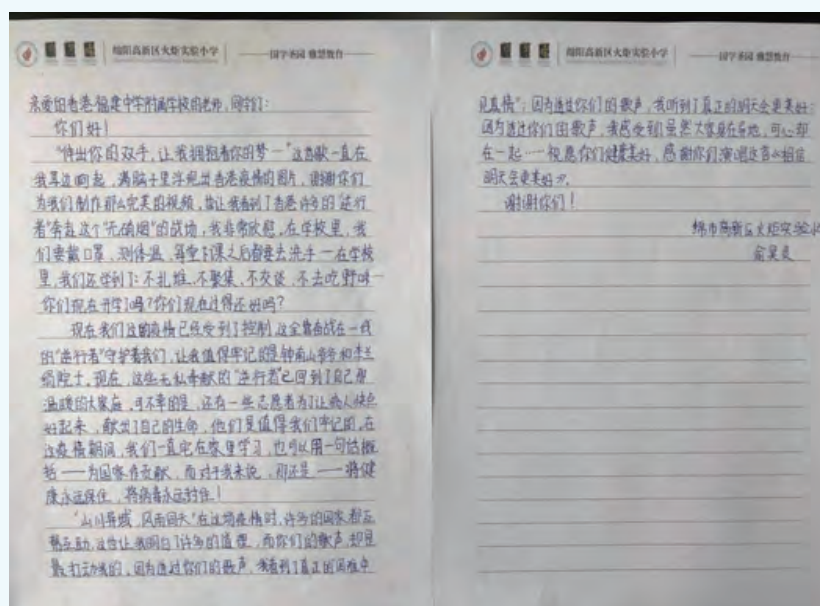 绵阳高新区火炬实验小学
国学养园 雅慧教育
亲爱的香港福建中学附属学校的老师、同学们:
你们好!
"伸出你的双手,让我拥抱着你的梦—"这首歌一直在
我耳边响起,满脑子里浮现出香港疫情的图片,谢谢你们
为我们制作那么完美的视频,皆让我看到了香港许多的"逆行
者"奔赴这个"无硝烟"的战场,我非常欣慰,在学校里,我
们要戴口罩,测体温,每堂下课之后都要去洗手—在学校
里,我们还学到了:不扎堆、不聚集、不交谈、不去吃野味—
你们现在开学了吗?你们现在过得还好吗?
现在我们这的疫情已经受到了控制,这全靠奋战在一线
的"逆行者"守护着我们,让我值得牢记的是钟南山爷爷和李兰
娟院士,现在,这些无私奉献的"逆行者"已回到了自己那
温暖的大家庭,可不幸的是,还有一些志愿者为了让病人快点
好起来,献出了自己的生命,他们是值得我们牢记的,在
这疫情期间,我们一直宅在家里学习,也可以用一句话概
括——为国家作贡献,而对于我来说,那还是——将健
康永远保住,将病毒永远封住!
"山川异域,风雨同天"在这场疫情时,许多的国家都互
帮互助,这皆让我明白了许多的道理,而你们的歌声,却是
最打动我的,因为透过你们的歌声,我看到了真正的困难中
绵阳高新区火炬实验小学
国学养园 雅慧教育
见真情";因为透过你们的歌声,我听到了真正的明天会更美好;
因为透过你们的歌声,我感受到虽然大家身在各地,可心却
在一起—祝愿你们健康美好,感谢你们演唱这首心相信
明天会更美好
谢谢你们!
绵市高新区火炬实验小
俞昊